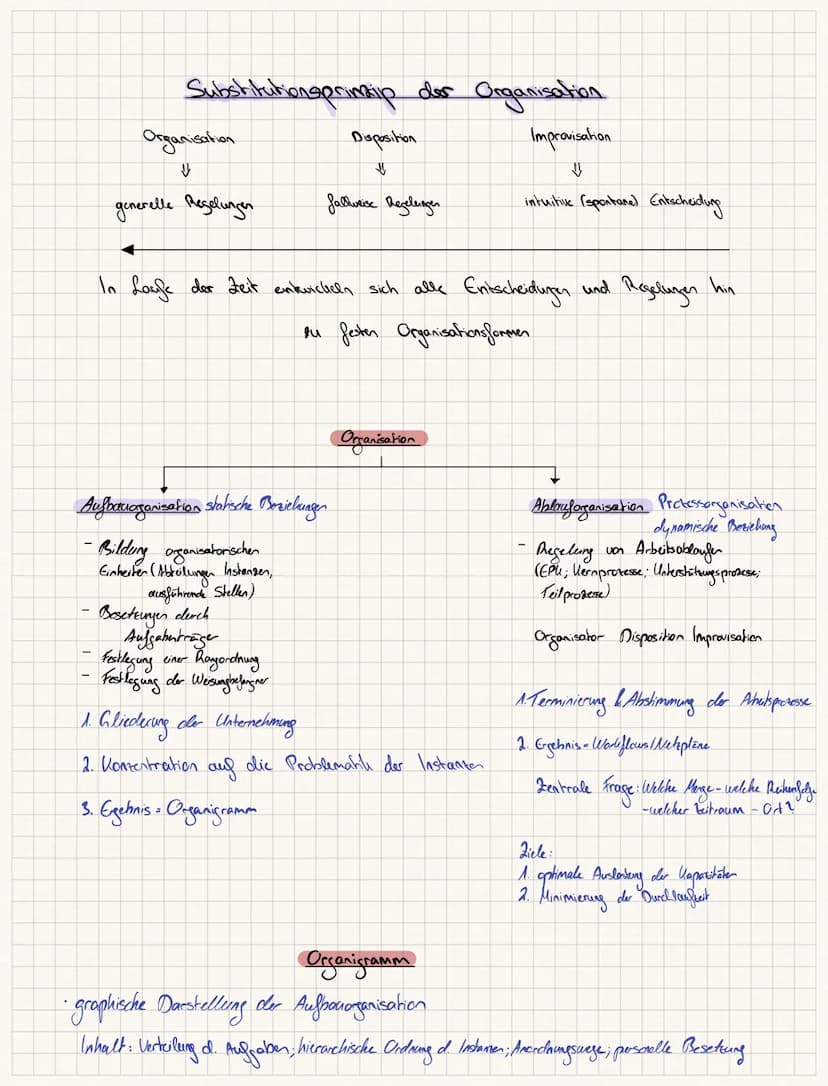 Substitutionsprinzip der Organisation
Organisation Disposition Improvisation
⇓ ⇓ ⇓
generelle Regelungen fallweise Regelungen intuitive (spontane) Entscheidung
In Laufe der Zeit entwickeln sich alle Entscheidungen und Regelungen hin
zu festen Organisationsformen
Organisation
Aufbauorganisation statische Beziehungen
- Bildung organisatorischen
Einheiten (Abteilungen Instanzen,
ausführende Stellen)
- Besetzungen durch
Aufgabenträger
- Festlegung einer Rangordnung
- Festlegung der
1. Gliederung der Unternehmung
2. Konzentration auf die Problematik der Instanzen
3. Ergebnis = Organigramm
Ablauforganisation Prozessorganisation
dynamische Beziehung
- Regelung von Arbeitsabläufen
(EPK; Kernprozesse; Unterstützungsprozesse;
Teilprozesse)
Organisator Disposition Improvisation
1. Terminierung & Abstimmung der Arbeitsprozesse
2. Ergebnis = Workflows/Netzpläne
Zentrale Frage: Welche Menge - welche Reihenfolge
- welcher Zeitraum - Ort?
Ziele:
1. optimale Auslastung der Kapazitäten
2. Minimierung der Durchlaufzeit
Organigramm
· graphische Darstellung der Aufbauorganisation
Inhalt: Verteilung d. Aufgaben; hierarchische Ordnung d. Instanzen; Anordnungswege; personelle Besetzung